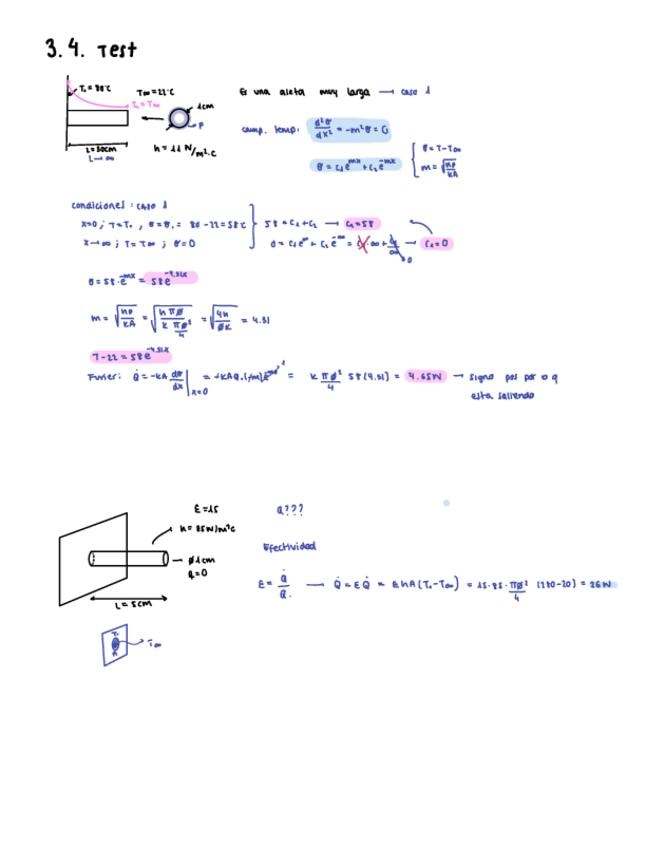 3.4. Test
T₀ = 80°C
T∞ = 22°C
T_L = T∞
1cm
P
L = 30cm
L → ∞
h = 11 W/m²·C
Es una aleta muy larga → caso 1
camp. temp:
d²θ/dx² = -m²θ = 0
θ = c₁e^mx + c₂e^-mx
θ = T - T∞
m = √(hP/kA)
condiciones: caso 1
x=0 ; T = T₀ , θ = θ₁ = 80 - 22 = 58°C
x → ∞ ; T = T∞ ; θ = 0
58 = c₁ + c₂ → c₂ = 58
0 = c₁e^∞ + c₂e^-∞ = c₁·∞ + c₂/∞ → c₁ = 0
0
θ = 58·e^-mx = 58e^-4.51x
m = √(hP/kA) = √(hπø/(kπø²/4)) = √(4h/øk) = 4.51
T - 22 = 58e^-4.51x
Furier: Q̇ = -kA dθ/dx |x=0 = -kAθ₁(-m)e^-m·0 = k πø²/4 58(4.51) = 4.65W → signo pos por q q
esta saliendo
ε = 15
h = 85W/m²C
ø1cm
q = 0
L = 5cm
T₀
A
T∞
Q???
Efectividad
ε = Q̇/Q̇₀ → Q̇ = εQ̇ = εhA(T₀ - T∞) = 15·85·πø²/4 (280-20) = 26W